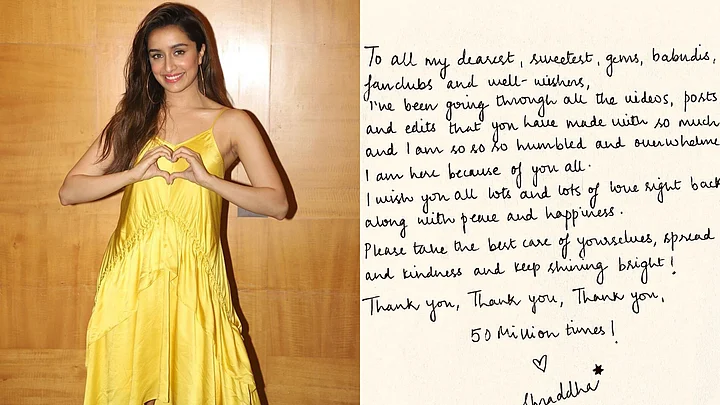 To all my dearest, sweetest, gems, babudis,
fanclubs and well-wishers,
I've been going through all the videos, posts
and edits that you have made with so much
and I am so so so humbled and overwhelme
I am here because of you all.
I wish you all lots and lots of love right back
along with peace and happiness.
Please take the best care of yourselves, spread
and kindness and keep shining bright!
Thank you, Thank you, Thank you,
50 Million times!
Shraddha